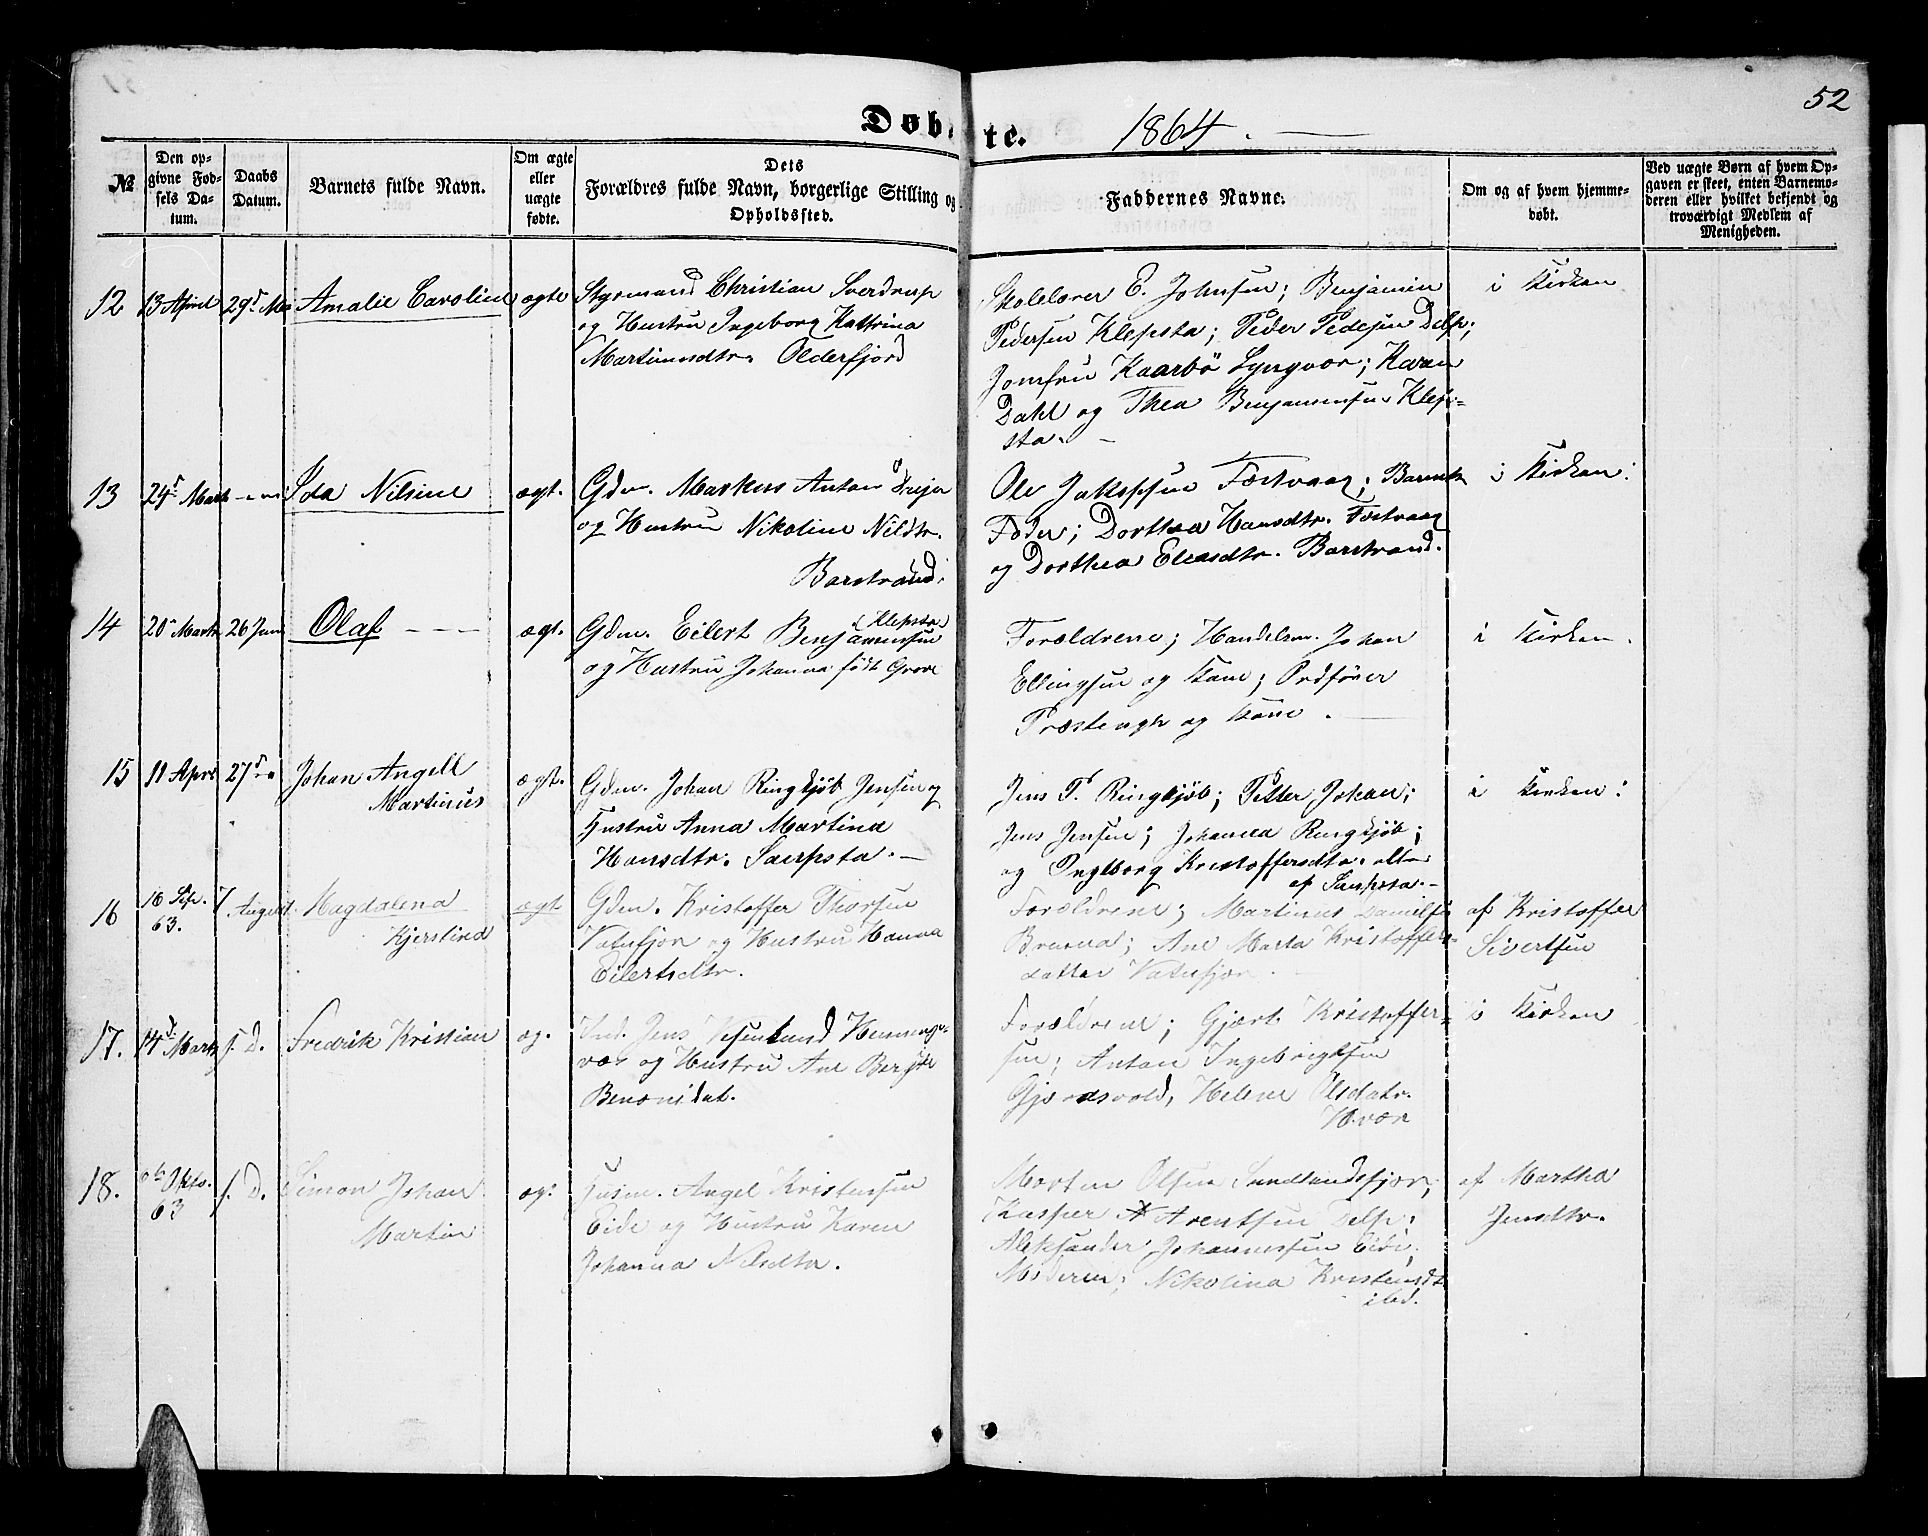 52
Døbte. 1864.
№
Den op-
givne Fød-
sels Da-
tum.
Daabs
Datum.
Barnets fulde Navn.
Om ægte
eller
uægte
fødte.
Dets
Forældres fulde Navn, borgerlige Stilling og
Opholdssted.
Faddernes Navne.
Om og af hvem hjemme-
døbt.
Ved uægte Børn af hvem Op-
gaven er skeet, enten Barnemo-
deren eller hvilket bekjendt og
troværdigt Medlem af
Menigheden.
12 13 April 29d Mai Amalie Caroline ægte
Styrmand Christian Sverdrup
og Hustru Ingeborg Kathrina
Martinusdtr. Olderfjord
Skolelærer E. Johnsen; Benjamin
Pedersen Klepsta; Peder Pedersen Delp;
Jomfru Kaarbö Lyngvær; Karen
Dahl og Thea Benjaminsen Klep-
sta. -
i Kirken
13 24d Marts Ida Nilsine ægt.
Gdm. Markus Anton
og Hustru Nikoline Nilsdtr.
Barstrand.
Ole Jakobsen Festvaag; Barnets
Fader; Dorthea Hansdtr. Festvaag
og Dorthea Eleasdtr. Barstrand.
i Kirken.
14 20 Marts 26 Juni Olaf ægt.
Gdm. Eilert Benjaminsen
(Klepsta)
og Hustru Johanna født Grove
Forældrene; Handelsm. Johan
Ellingsen og Kone; Ordfører
Præstengh og Kone.
i Kirken.
15 11 April 27d Johan Angell
Martinus
ægt.
Gdm. Johan Ringkjöb Jensen og
Hustru Anna Martina
Hansdtr. Saupsta. -
Jens P. Ringkjöb; Petter Johan;
Jens Jensen; Johanna Ringkjöb;
og Ingeborg Kristoffersdtr. alle
af Saupsta. -
i Kirken.
16 16 Sep.
63.
7 August Magdalena
Kjerstina
ægt
Gdm. Kristoffer Thorsen
Vatnfjor og Hustru Hanna
Eilertsdtr.
Forældrene; Martinus Danielsen
Brenna; Ane Marta Kristoffers-
datter Vatnfjor.
af Kristoffer
Sivertsen
17. 14d Marts s. D. Fredrik Kristian æg.
Ind. Jens Henningsvær
og Hustru Ane Bergitte
Benonidat.
Forældrene; Gjært Kristoffer-
sen; Anton Ingebrigtsen
Gjerdsvold, Helene Olsdatr.
H.vær
i Kirken
18. Okto.
63
s. D. Simon Johan
Martin
æg.
Husm. Angel Kristensen
Eide og Hustru Karen
Johanna Nilsdtr.
Morten Olsen Sundlandsfjor;
Kasper Arentsen Delp;
Aleksander Johannessen Eide;
Moderen; Nikolina Kristensdt.
ibd.
af Martha
Jensdtr.